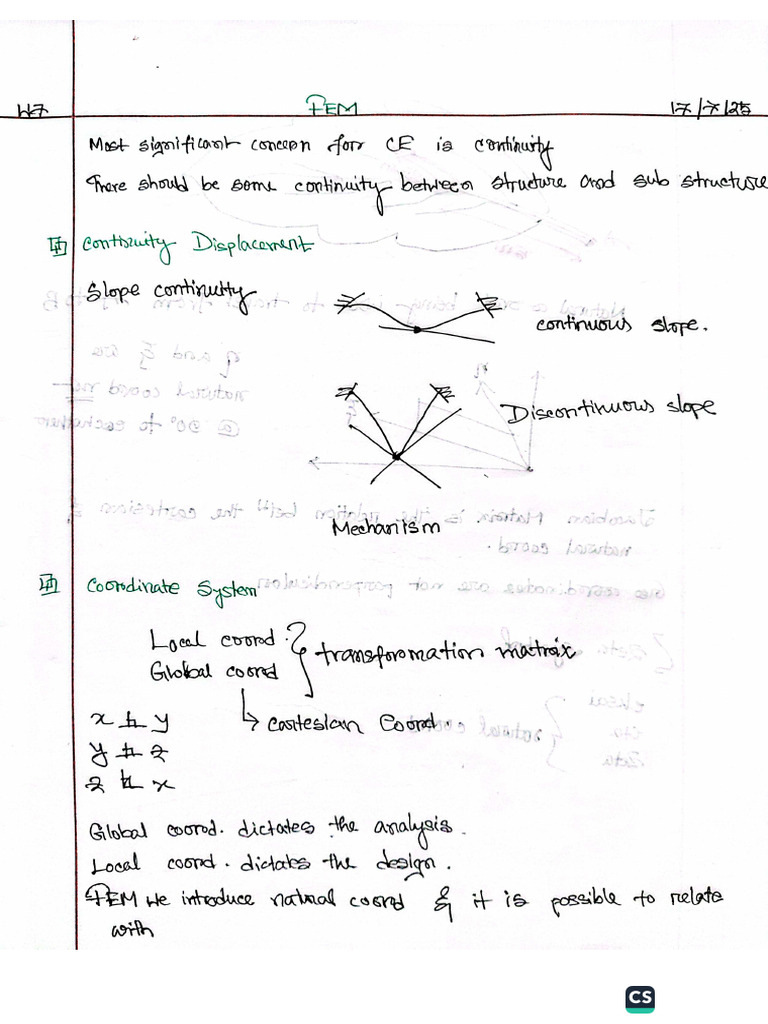 W7
FEM
17/7/25
Most significant concepn for CE is continuity
There should be some continuity between structure and sub structure
Continuity Displacement
Slope continuity
continuous slope.
Discontinuous slope
Mechanism
Coordinate System
Local coord.
Global coord
transformation matrix
Cartesian Coord.
x y
y z
z x
Global coord. dictates the analysis.
Local coord. dictates the design.
FEM we introduce natural coord & it is possible to relate
with
CS